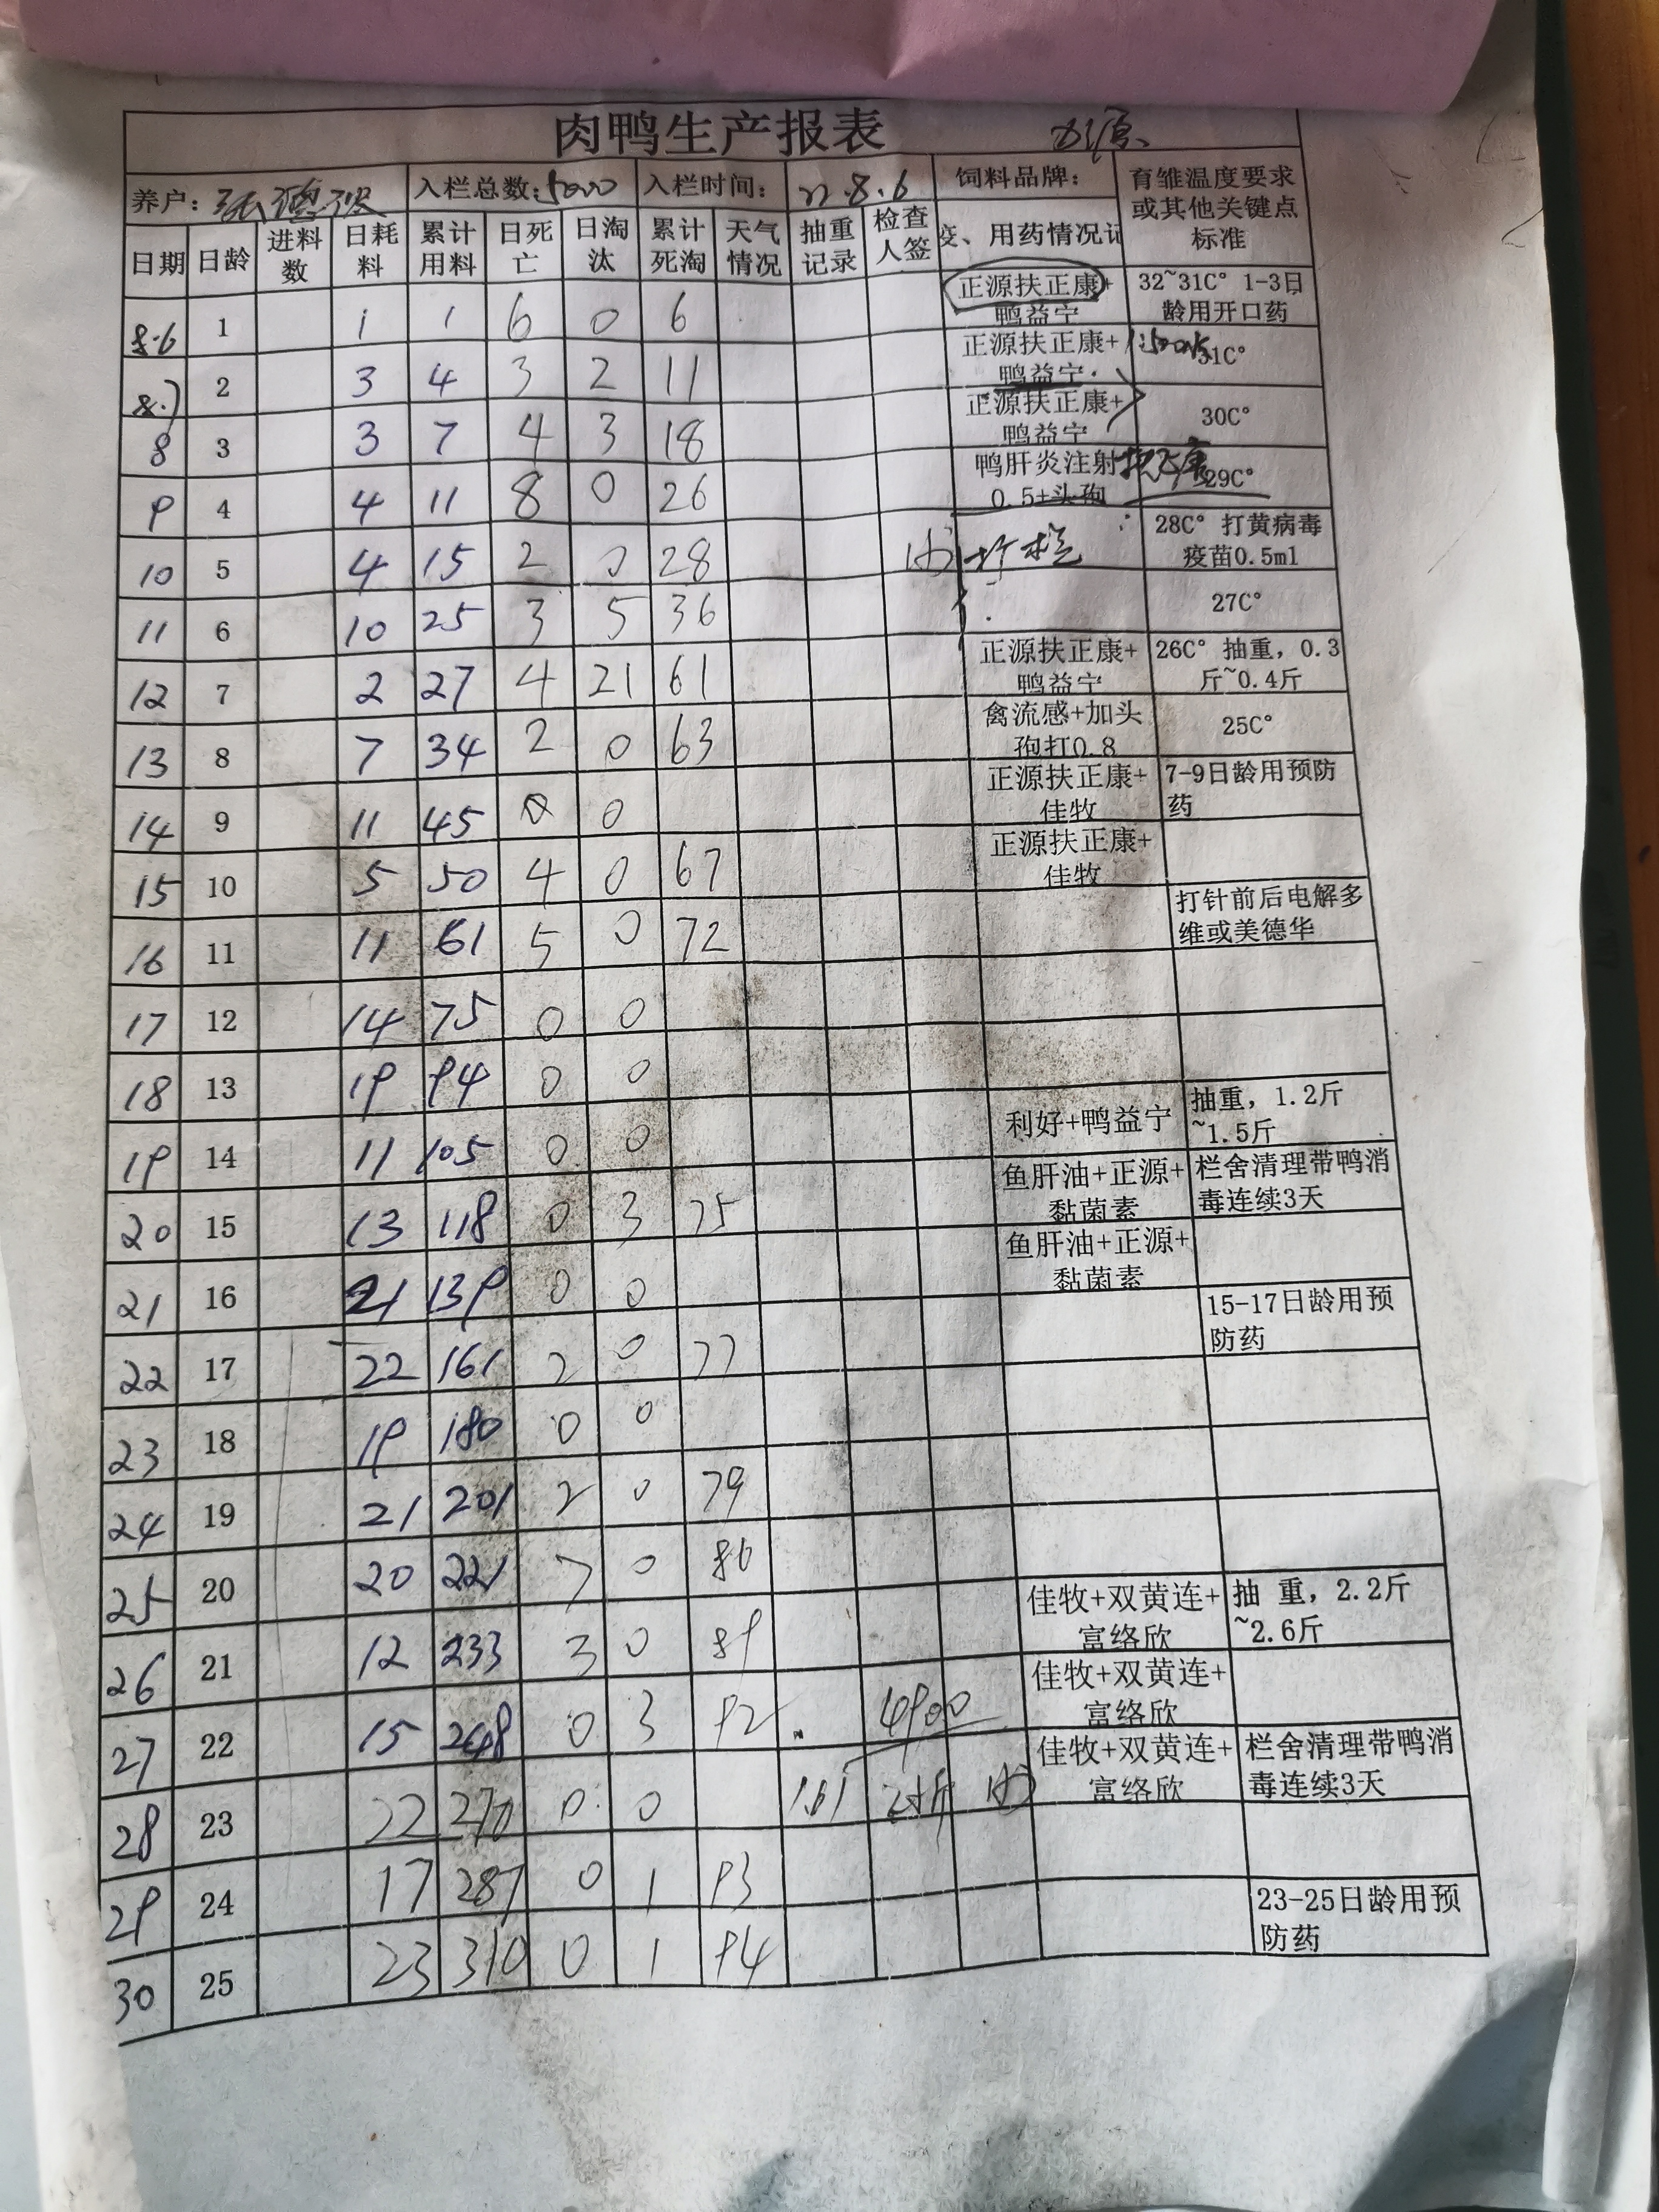 肉鸭生产报表
养户: 入栏总数:5000 入栏时间: 22.8.6 饲料品牌: 育雏温度要求或其他关键点标准
日期 日龄 进料数 日耗料 累计用料 日死亡 日淘汰 累计死淘 天气情况 抽重记录 检查人签 疫、用药情况记
8.6 1 1 1 6 0 6 正源扶正康+鸭益宁 32~31C° 1-3日龄用开口药
8.7 2 3 4 3 2 11 正源扶正康+鸭益宁 31C°
8 3 3 7 4 3 18 正源扶正康+鸭益宁 30C°
9 4 4 11 8 0 26 鸭肝炎注射0.5+头孢 29C°
10 5 4 15 2 0 28 28C° 打黄病毒疫苗0.5ml
11 6 10 25 3 5 36 27C°
12 7 2 27 4 21 61 正源扶正康+鸭益宁 26C° 抽重，0.3斤~0.4斤
13 8 7 34 2 0 63 禽流感+加头孢打0.8 25C°
14 9 11 45 0 0 正源扶正康+佳牧 7-9日龄用预防药
15 10 5 50 4 0 67 正源扶正康+佳牧
16 11 11 61 5 0 72 打针前后电解多维或美德华
17 12 14 75 0 0
18 13 19 94 0 0
19 14 11 105 0 0 利好+鸭益宁 抽重，1.2斤~1.5斤
20 15 13 118 0 3 75 鱼肝油+正源+黏菌素 栏舍清理带鸭消毒连续3天
21 16 21 139 0 0 鱼肝油+正源+黏菌素
22 17 22 161 2 0 77 15-17日龄用预防药
23 18 19 180 0 0
24 19 21 201 2 0 79
25 20 20 221 7 0 86
26 21 12 233 3 0 89 佳牧+双黄连+富络欣 抽 重，2.2斤~2.6斤
27 22 15 248 0 3 92 4900 佳牧+双黄连+富络欣
28 23 22 270 0 0 1.61 佳牧+双黄连+富络欣 栏舍清理带鸭消毒连续3天
29 24 17 287 0 1 93
30 25 23 310 0 1 94 23-25日龄用预防药